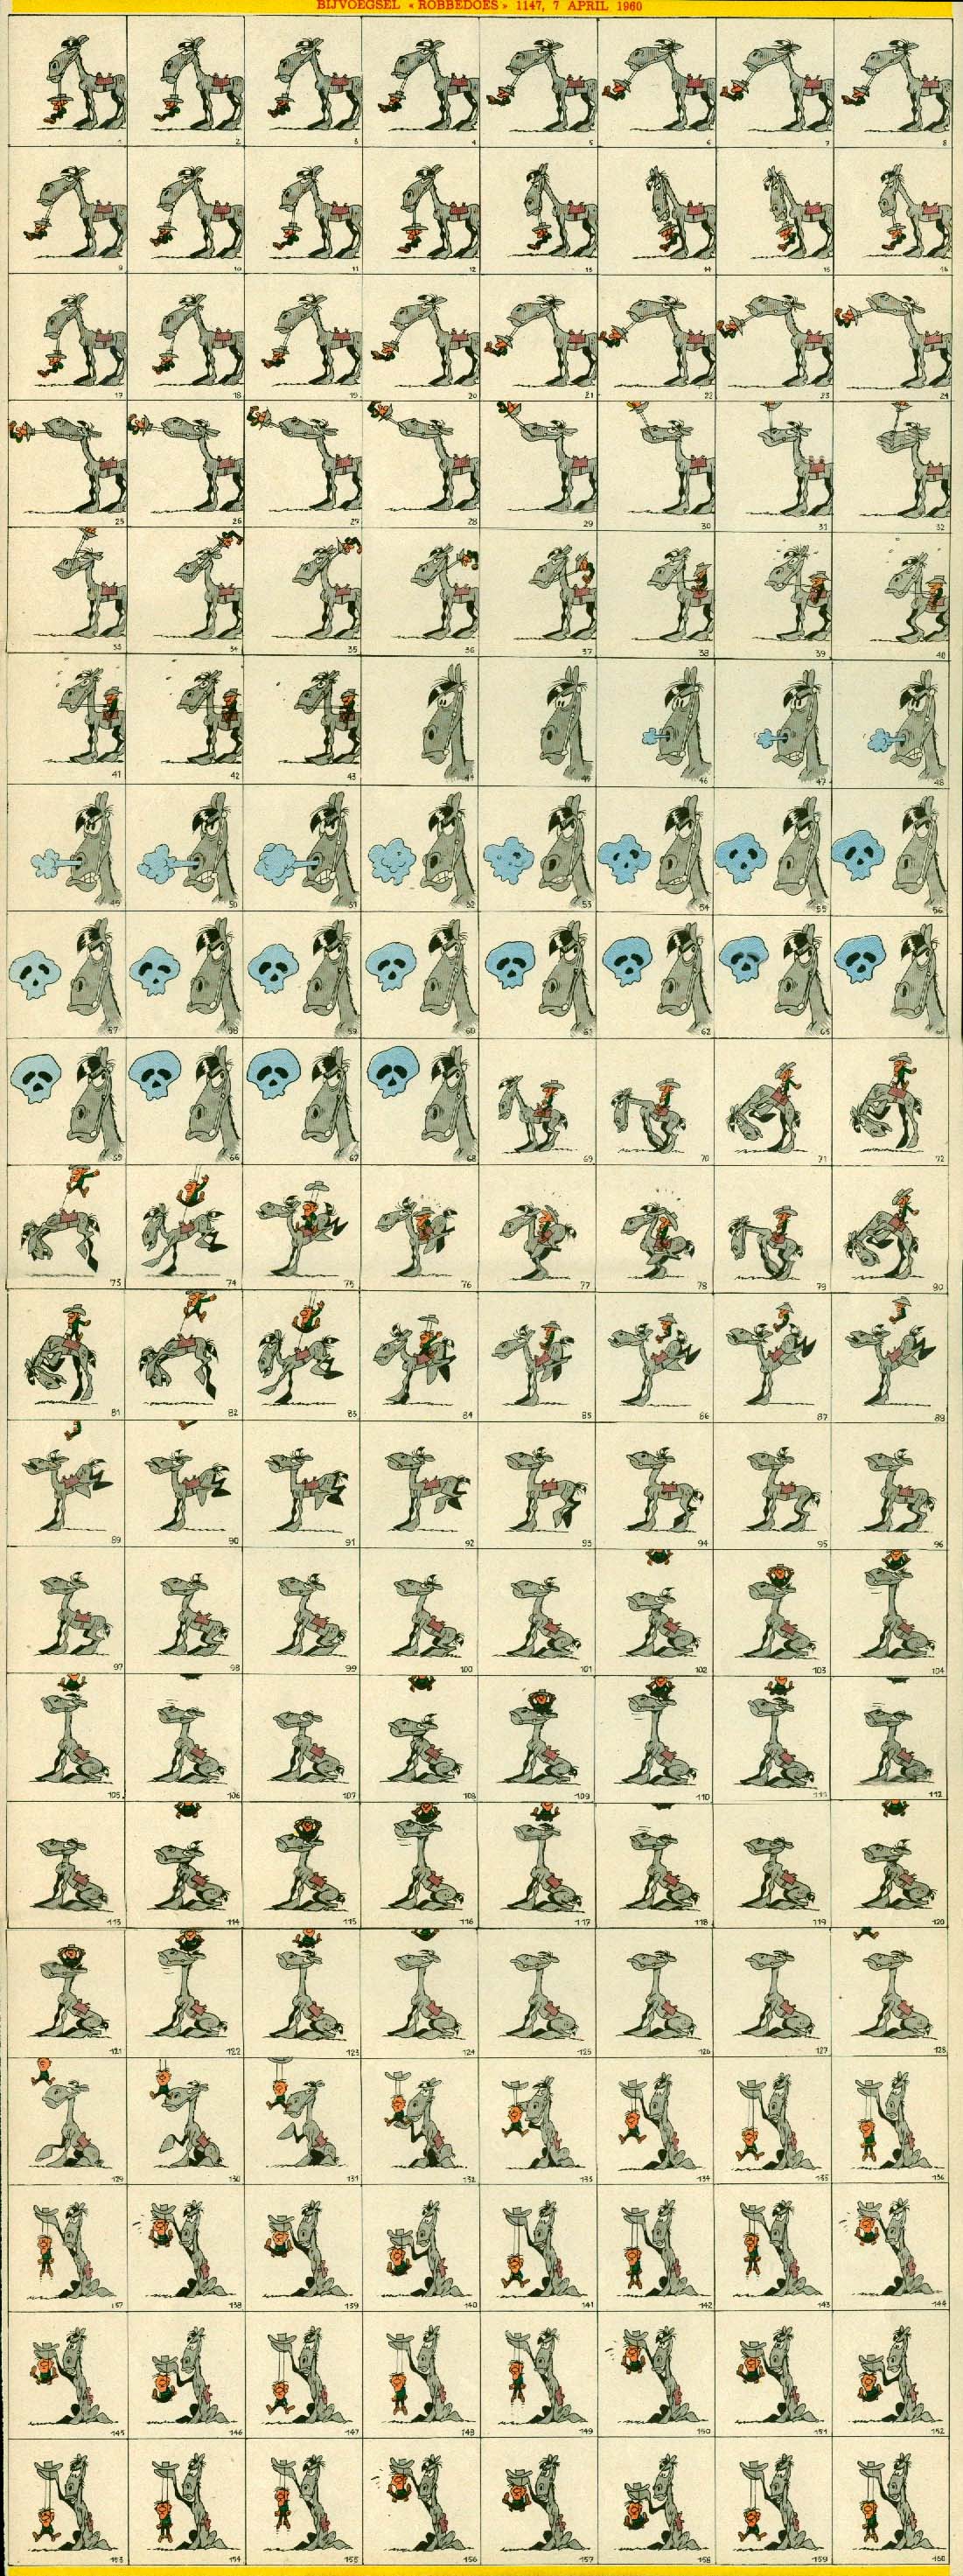 BIJVOEGSEL « ROBBEDOES » 1147, 7 APRIL 1960
1 2 3 4 5 6 7 8
9 10 11 12 13 14 15 16
17 18 19 20 21 22 23 24
25 26 27 28 29 30 31 32
33 34 35 36 37 38 39 40
41 42 43 44 45 46 47 48
49 50 51 52 53 54 55 56
57 58 59 60 61 62 63
65 66 67 68 69 70 71 72
73 74 75 76 77 78 79 80
81 82 83 84 85 86 87 88
89 90 91 92 93 94 95 96
97 98 99 100 101 102 103 104
105 106 107 108 109 110 111 112
113 114 115 116 117 118 119 120
121 122 123 124 125 126 127 128
129 130 131 132 133 134 135 136
137 138 139 140 141 142 143 144
145 146 147 148 149 150 151 152
153 154 155 156 157 158 159 160